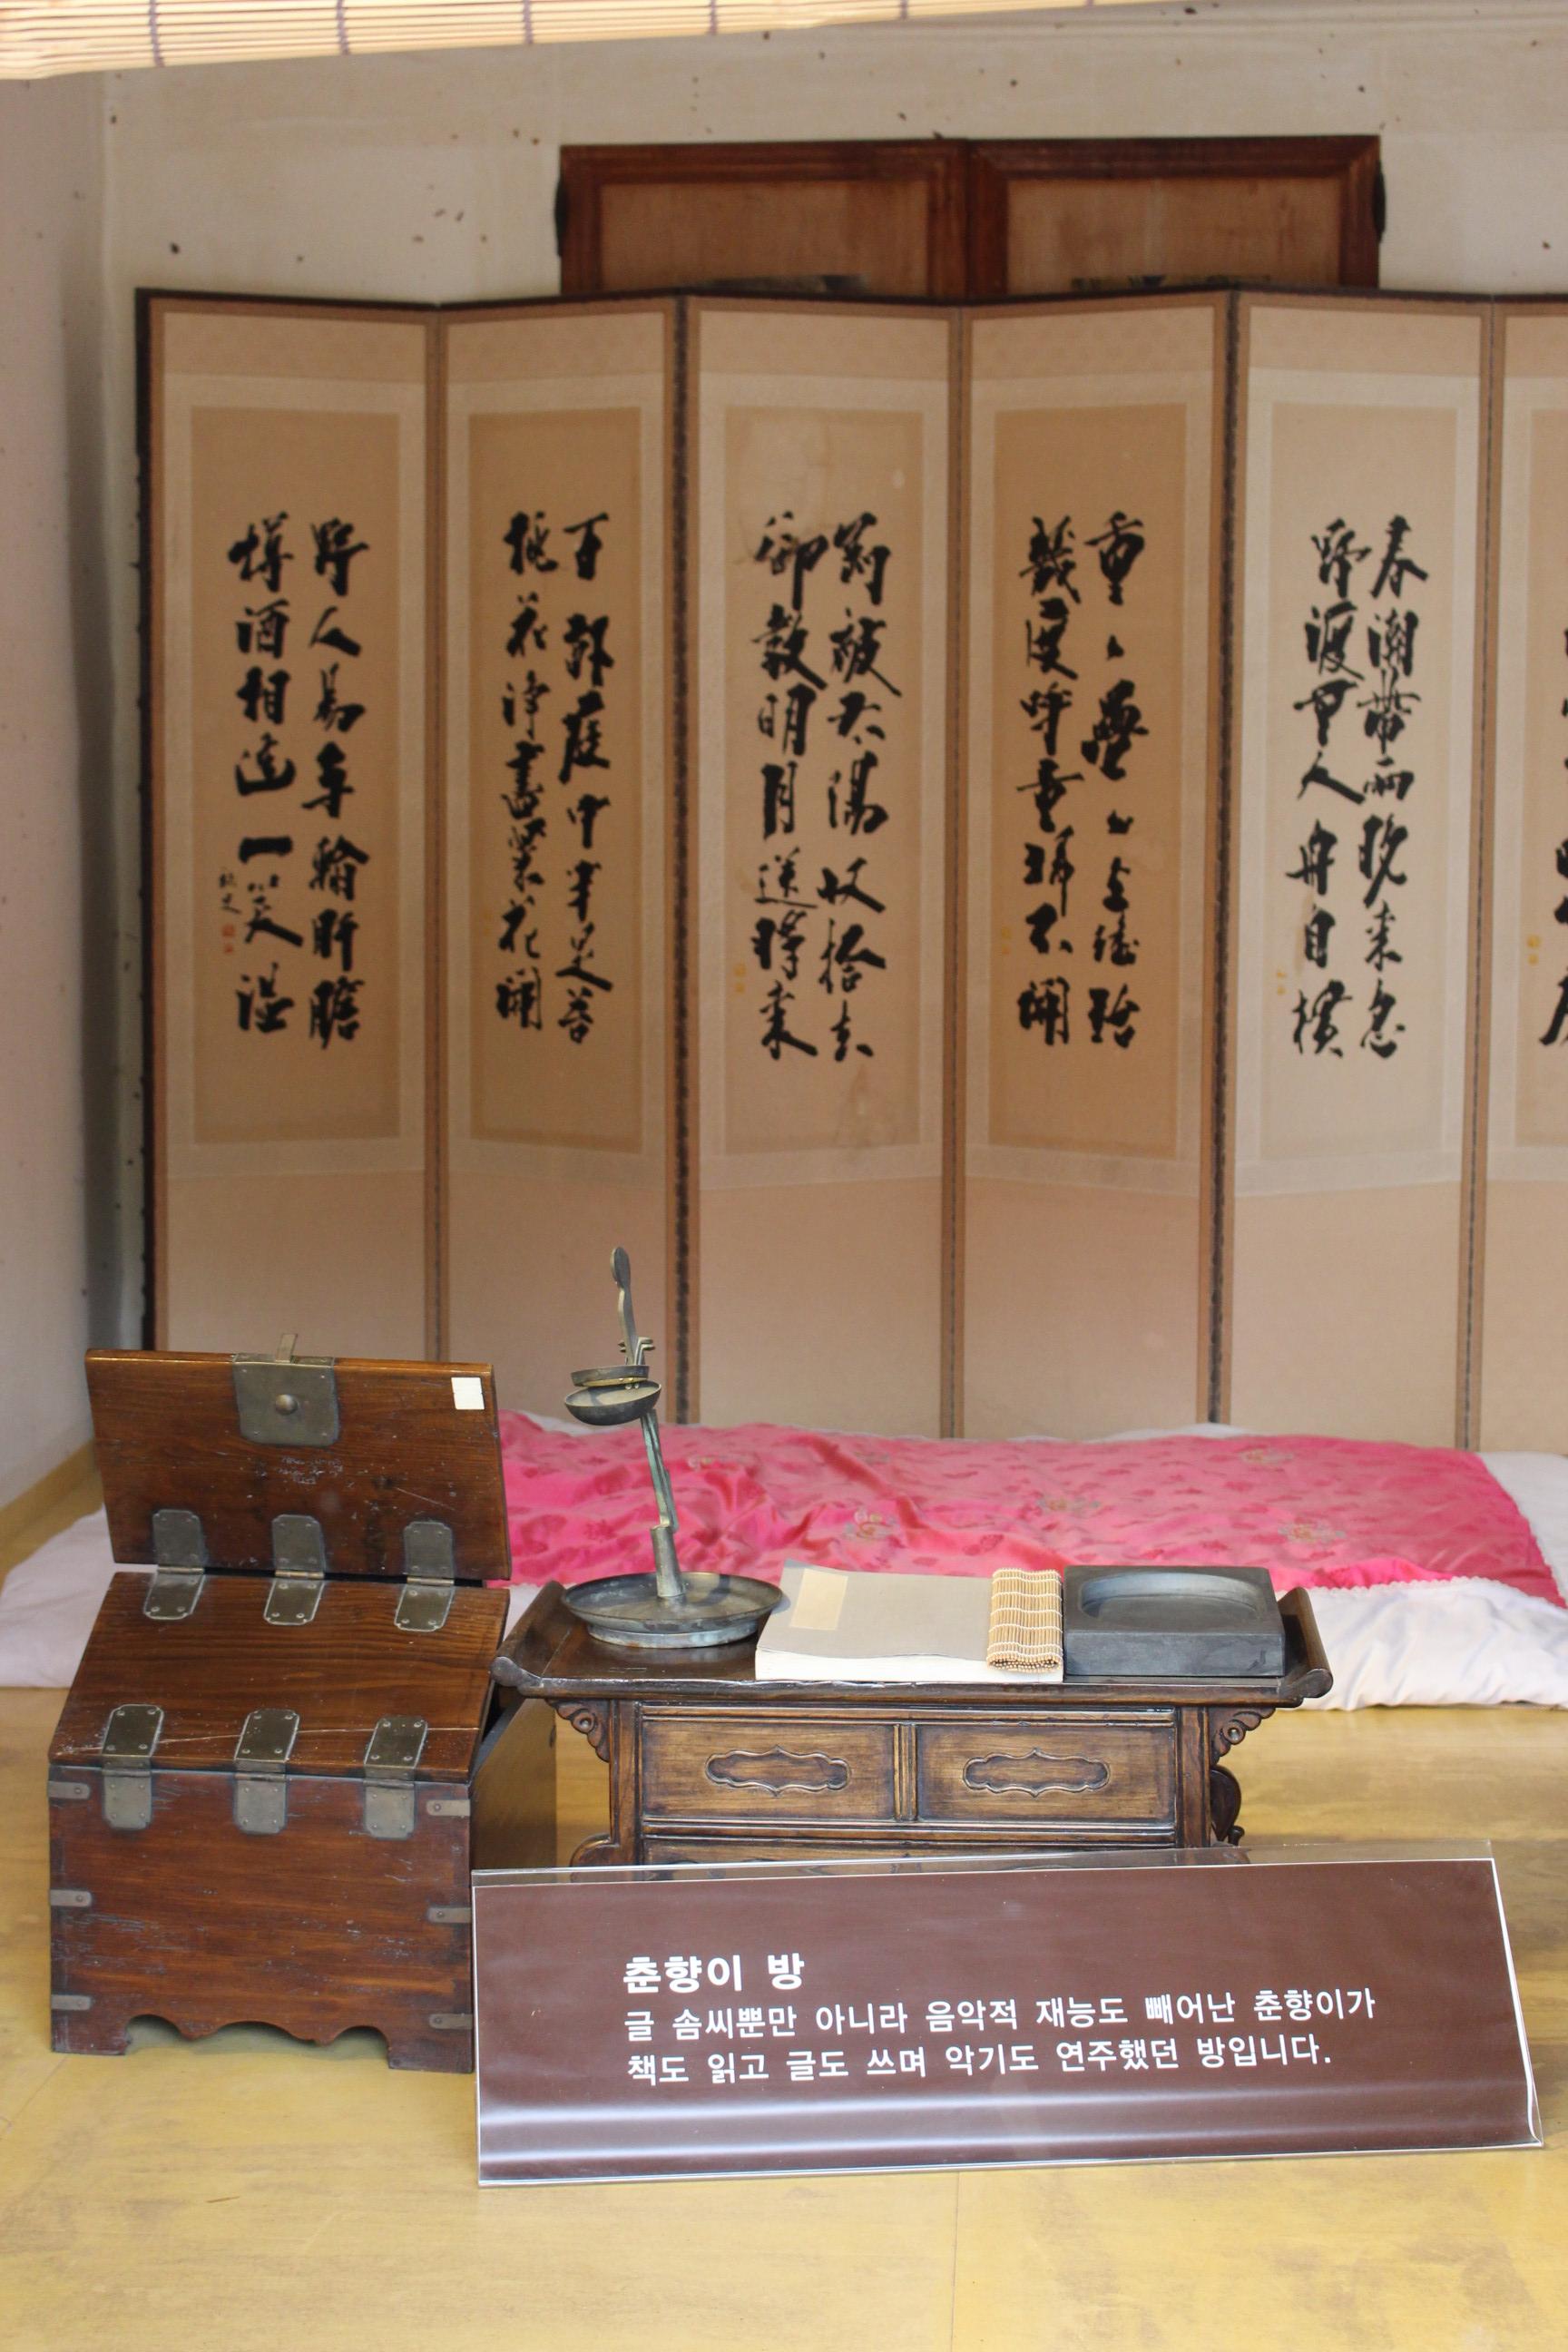 春潮帶雨晚來急
野渡無人舟自横
重重疊疊上瑤臺
幾度呼童掃不開
剛被太陽收拾去
却教明月送將來
百畝庭中半是苔
桃花淨盡菜花開
野人易與輸肝膽
樽酒相逢一笑溫
춘향이 방
글 솜씨뿐만 아니라 음악적 재능도 빼어난 춘향이가
책도 읽고 글도 쓰며 악기도 연주했던 방입니다.